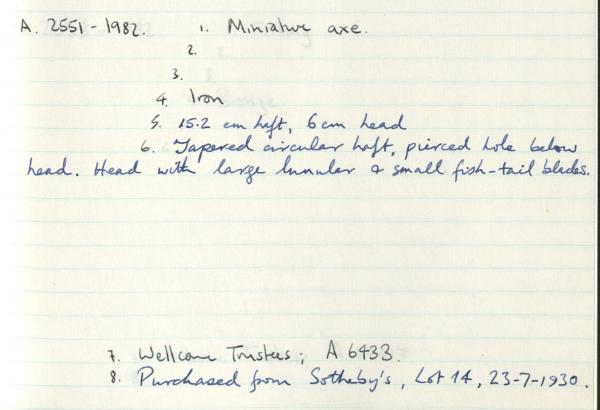 A. 2551-1982. 1. Miniature axe.
2.
3.
4. Iron
5. 15.2 cm haft, 6 cm head
6. Tapered circular haft, pierced hole below
head. Head with large lunular & small fish-tail blades.
7. Wellcome Trustees; A 6433.
8. Purchased from Sotheby's, Lot 14, 23-7-1930.